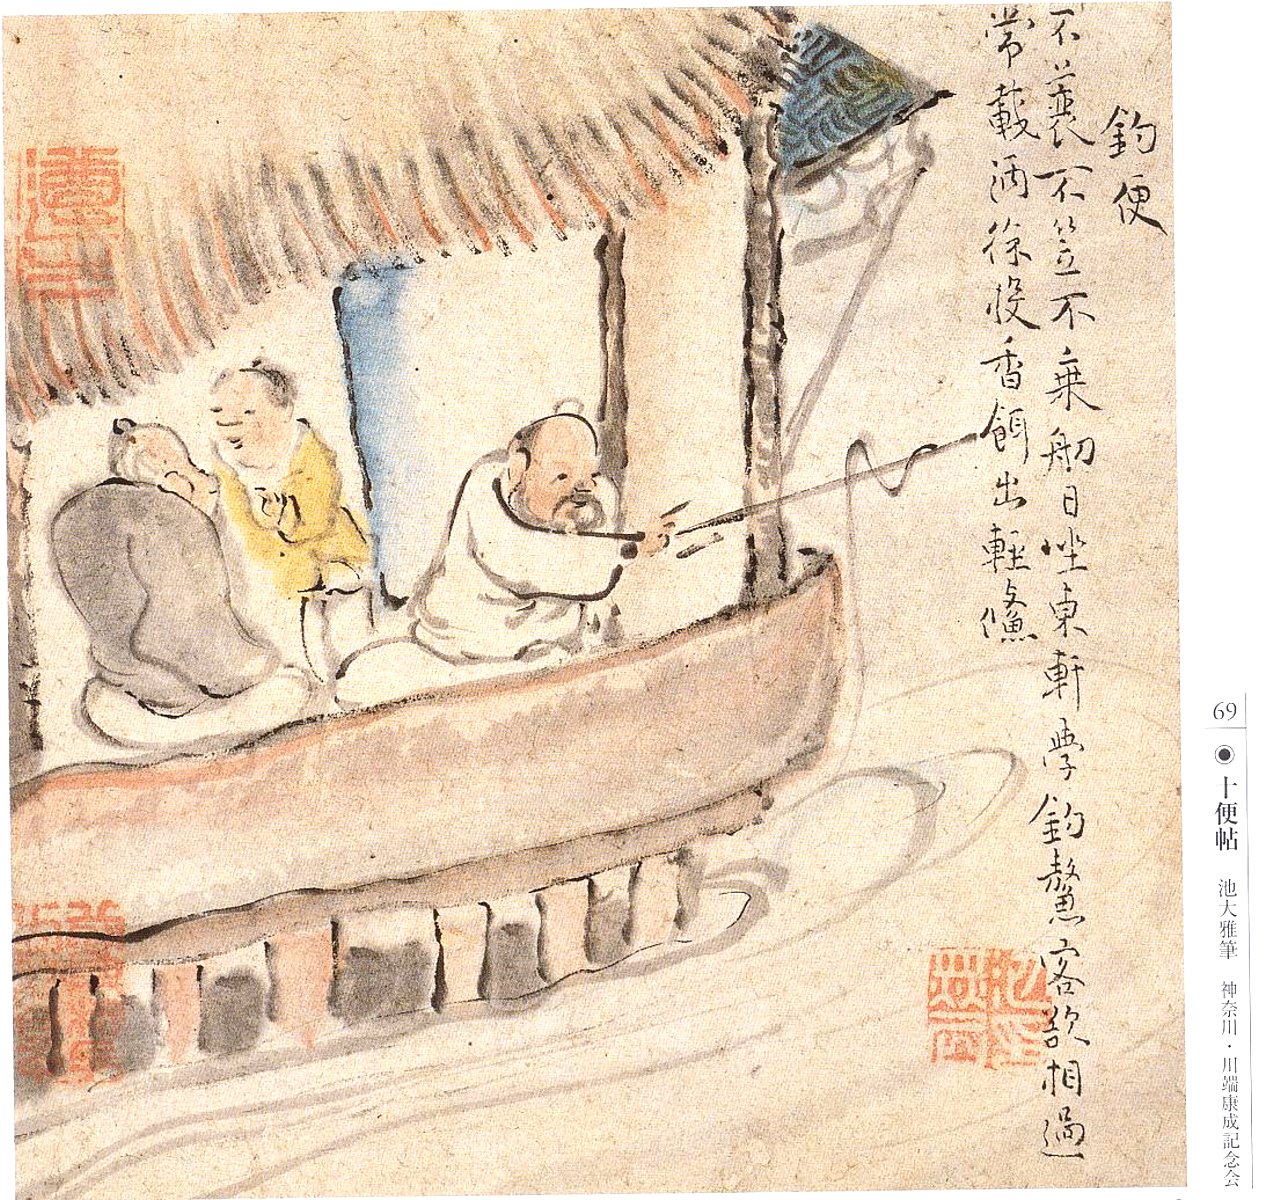 釣便
不蓑不笠不乗舠日坐東軒學釣鰲客欲相過
常載酒徐投香餌出輕鯈
69
◉十便帖 池大雅筆 神奈川・川端康成記念会